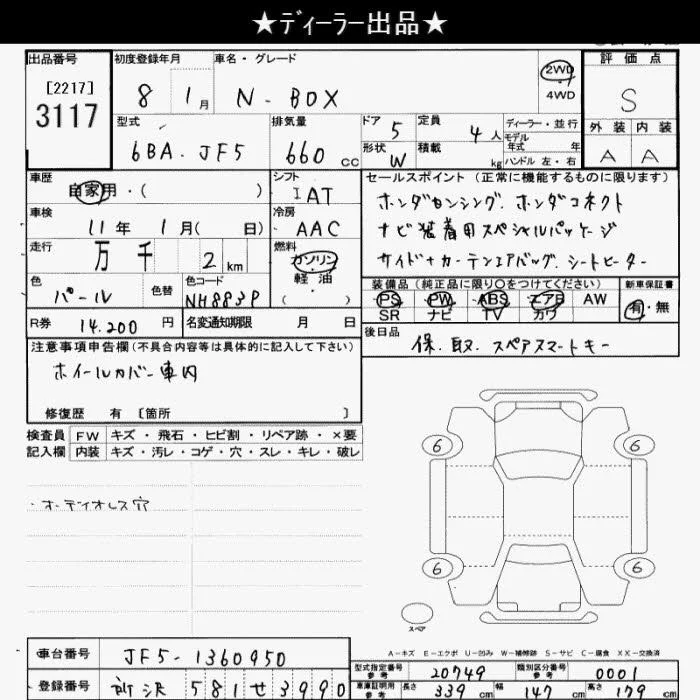 ★ディーラー出品★
出品番号 初度登録年月 車名・グレード 2WD 評価点
[2217] 3117 8 1月 N-BOX 4WD S
型式 排気量 ドア 5 定員 4人 ディーラー・並行 外装 内装
6BA-JF5 660cc 形状 W 積載 kg モデル年式 年 A A
ハンドル 左・右
車歴 シフト セールスポイント(正常に機能するものに限ります)
自家用・( ) IAT ホンダセンシング.ホンダコネクト
車検 冷房 ナビ装着用スペシャルパッケージ
11年 1月( 日) AAC サイド+カーテンエアバッグ.シートヒーター
走行 燃料
万 千 2km ガソリン・軽油・( )
色 色替 色コード 装備品(純正品に限り○をつけてください) 新車保証書
パール NH883P PS PW ABS エアB AW 有・無
SR ナビ TV カワ
R券 14.200円 名変通知期限 月 日 後日品
保.取.スペアスマートキー
注意事項申告欄(不具合内容等は具体的に記入して下さい)
ホイールカバー車内
修復歴 有 [箇所 ]
検査員 FW キズ・飛石・ヒビ割・リペア跡・×要
記入欄 内装 キズ・汚レ・コゲ・穴・スレ・キレ・破レ
・オーディオレス穴
6 6
6 6
スペア
A-キズ E-エクボ U-凹み W-補修跡 S-サビ C-腐食 XX-交換済
車台番号 JF5-1360950 型式指定番号 参考 20749 類別区分番号 参考 0001
登録番号 所沢 581 せ 3990 車庫証明用 参考 長さ 339cm 幅 147cm 高さ 179cm